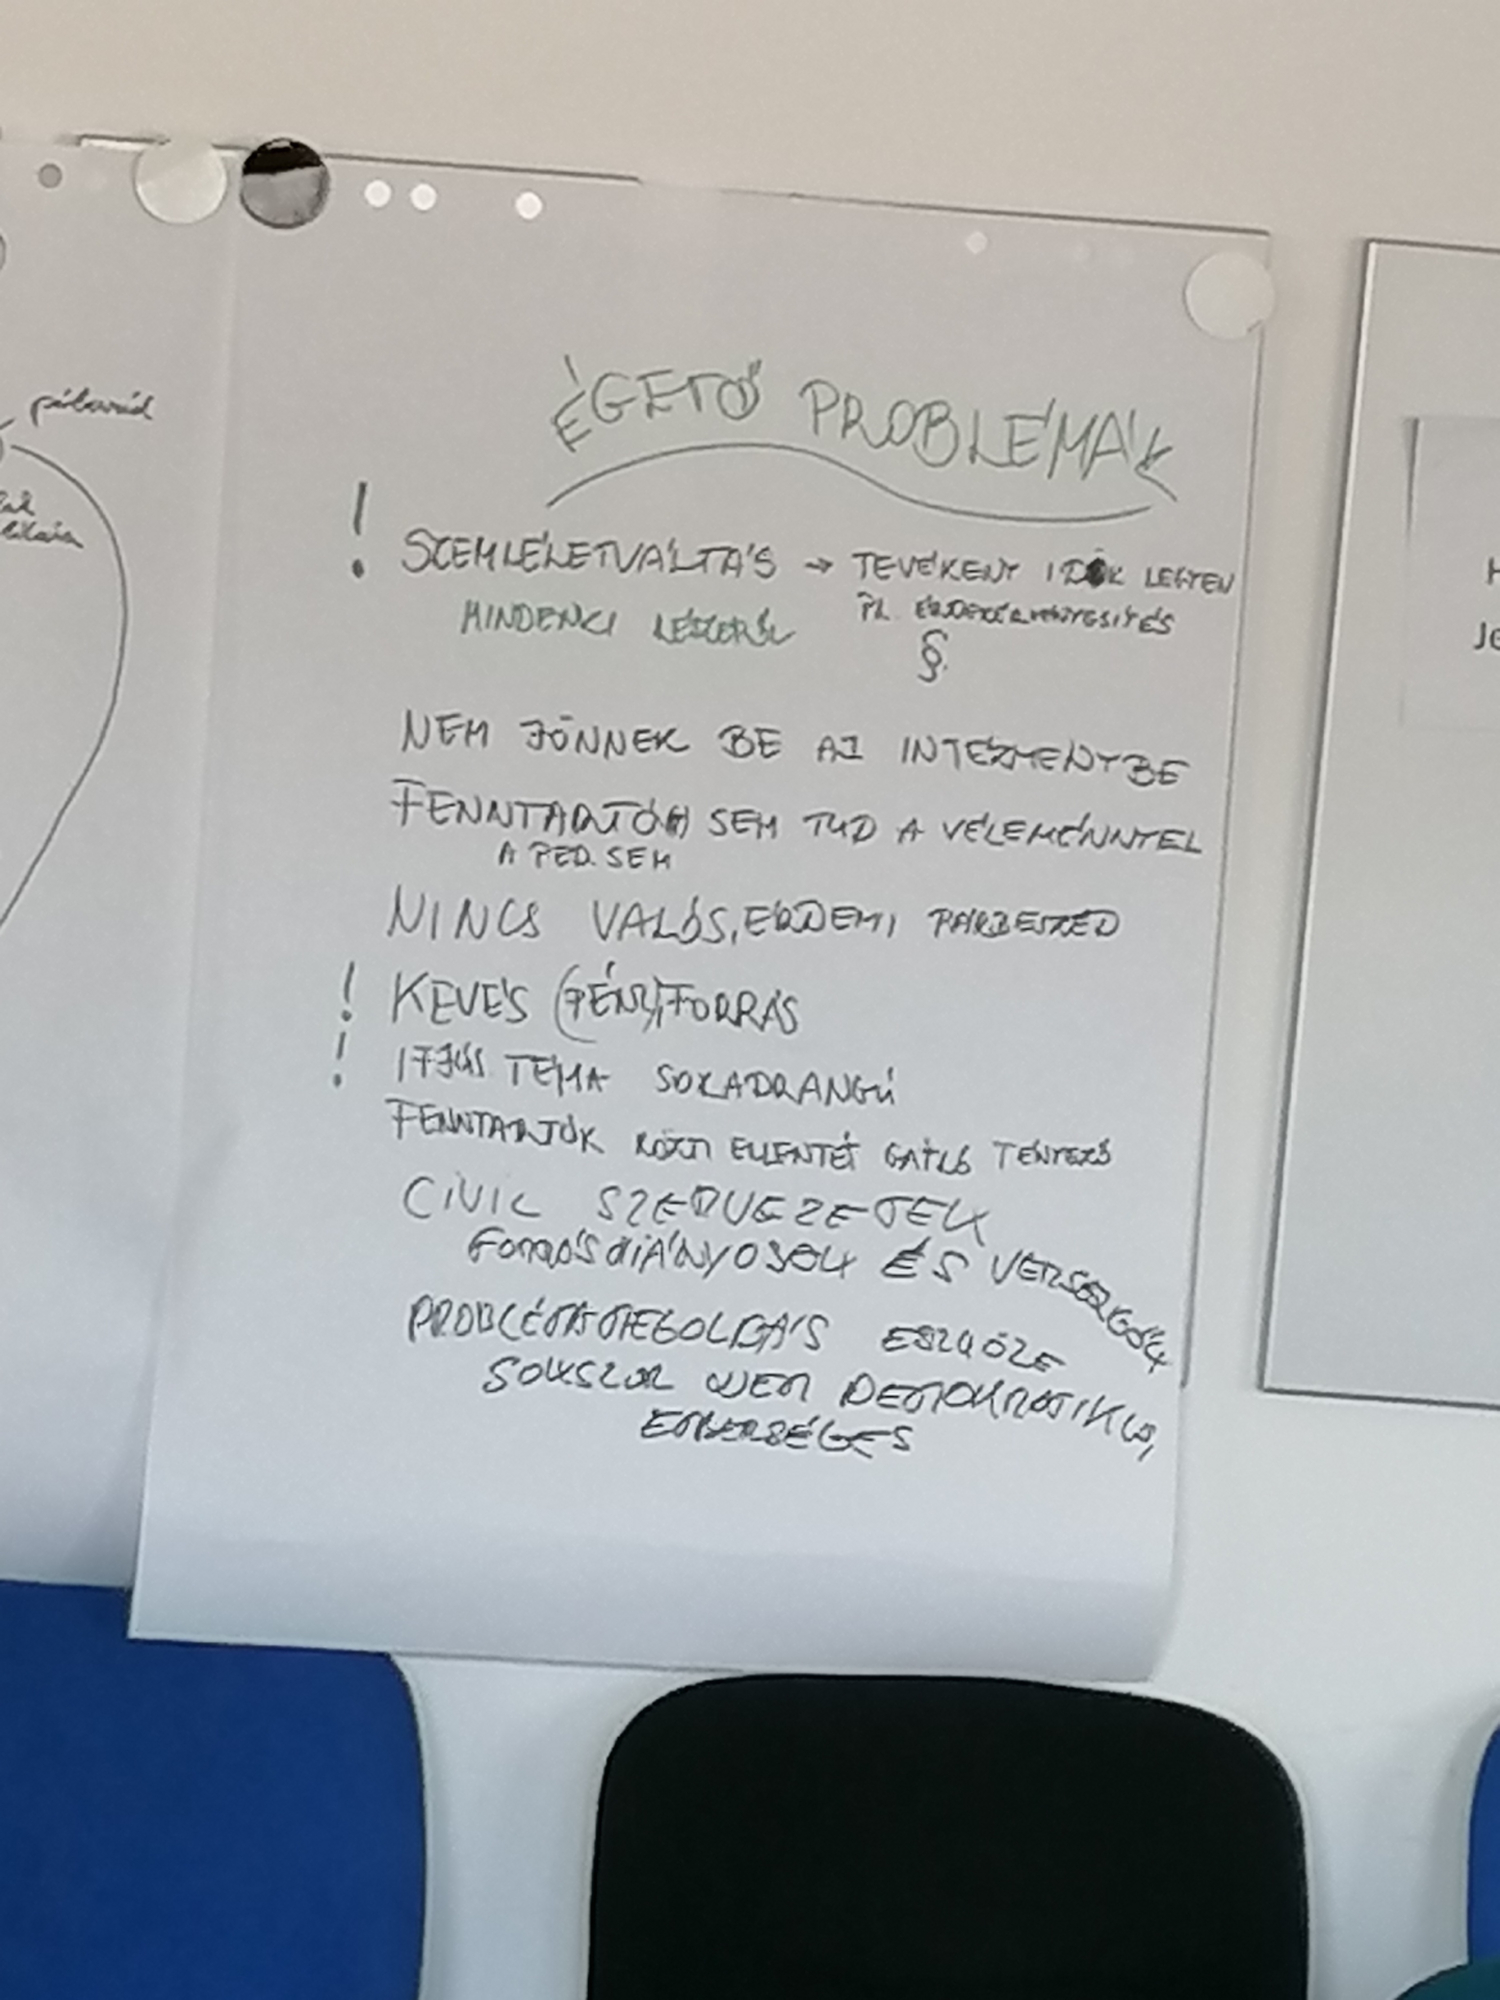 ÉGETŐ PROBLÉMÁK
! SZEMLÉLETVÁLTÁS → TEVÉKENY IDŐK LEGYEN
MINDENKI RÉSZÉRŐL
PL. ÉRDEKÉRVÉNYESÍTÉS
§.
NEM JÖNNEK BE AZ INTÉZMÉNYBE
FENNTARTÓ(K) SEM TUD A VÉLEMÉNNYEL
A PED. SEM
NINCS VALÓS, ÉRDEMI PÁRBESZÉD
! KEVÉS (PÉNZ)FORRÁS
! IFJÚS. TÉMA SOKADRANGÚ
FENNTARTÓK KÖZTI ELLENTÉT GÁTLÓ TÉNYEZŐ
CIVIL SZERVEZETEK
FORRÁSHIÁNYOSOK ÉS VERSENGŐK
PROBLÉMAMEGOLDÁS ESZKÖZE
SOKSZOR NEM DEMOKRATIKUS,
EMBERSÉGES
H
Je